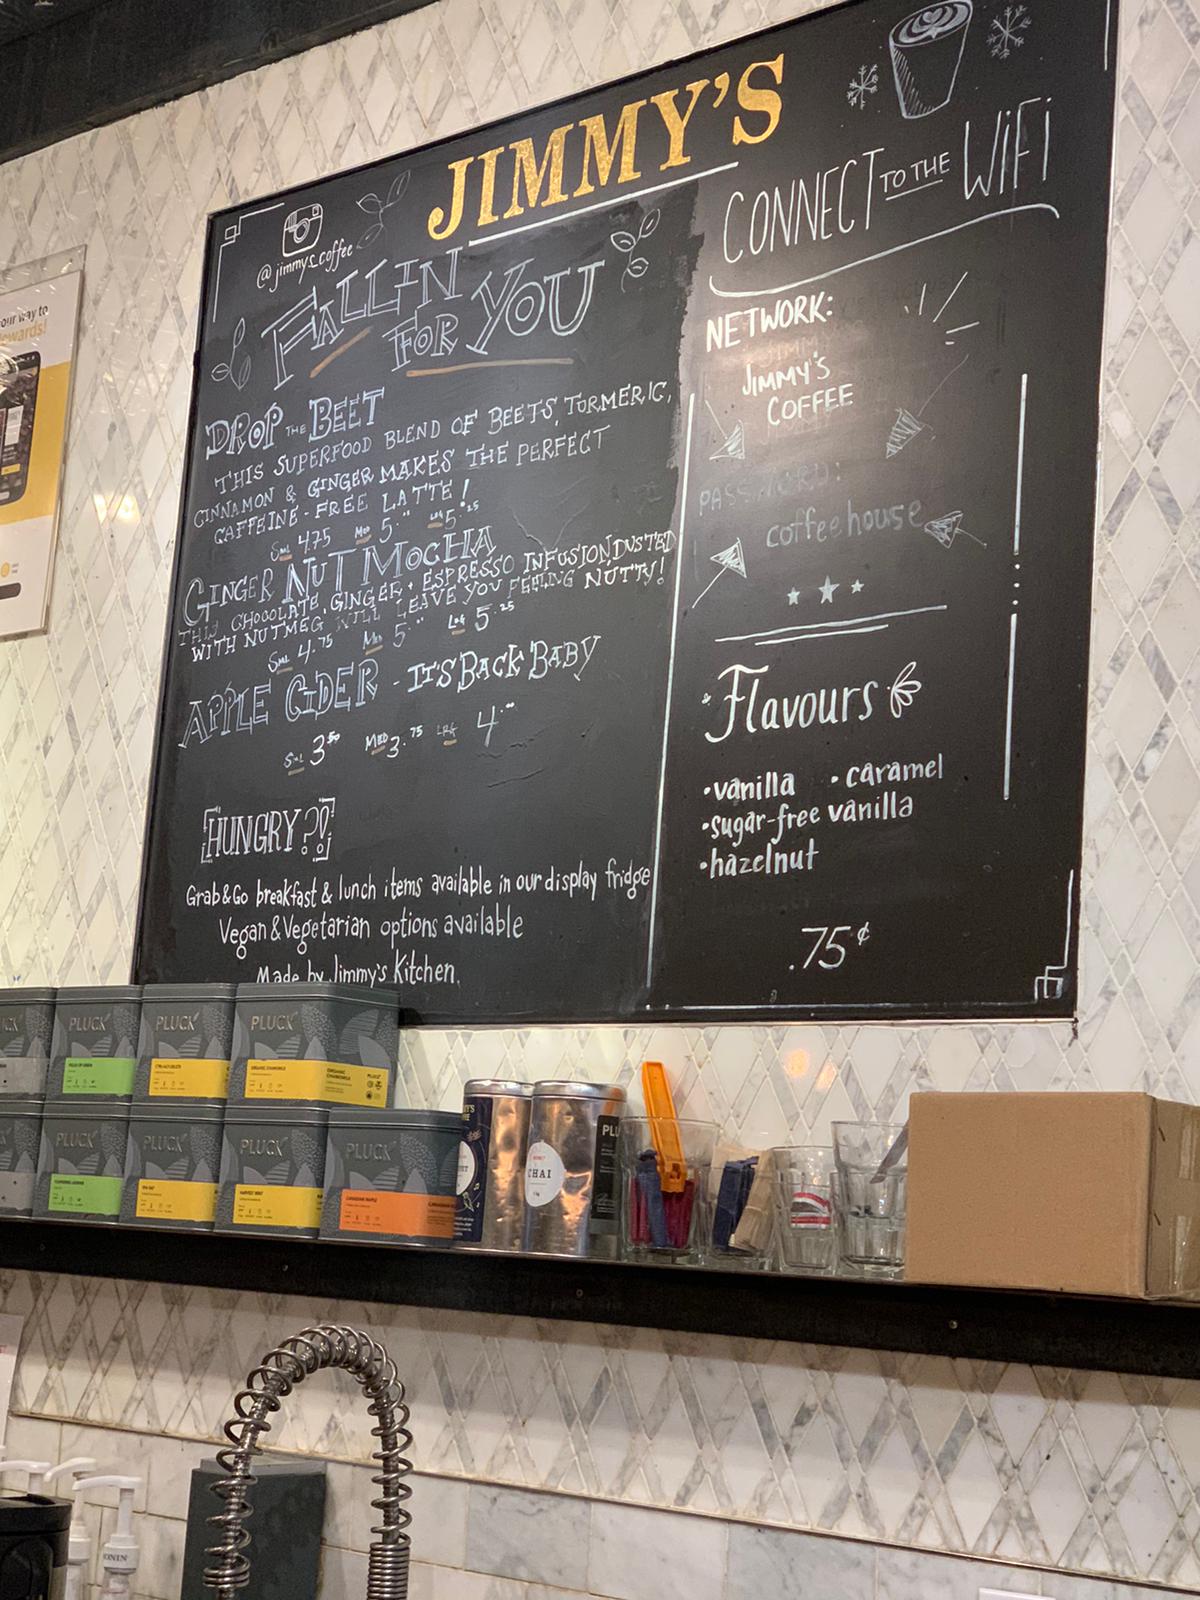 JIMMY'S
@jimmys_coffee
FALLIN
FOR YOU
DROP THE BEET
THIS SUPERFOOD BLEND OF BEETS, TURMERIC,
CINNAMON & GINGER MAKES THE PERFECT
CAFFEINE-FREE LATTE!
SML 4.75 MED 5.00 LRG 5.25
GINGER NUT MOCHA
THIS CHOCOLATE, GINGER + ESPRESSO INFUSION, DUSTED
WITH NUTMEG WILL LEAVE YOU FEELING NUTTY!
SML 4.75 MED 5.00 LRG 5.25
APPLE CIDER - IT'S BACK BABY
SML 3.50 MED 3.75 LRG 4.00
HUNGRY?!
Grab&Go breakfast & lunch items available in our display fridge
Vegan & Vegetarian options available
Made by Jimmy's Kitchen.
CONNECT TO THE WIFI
NETWORK:
JIMMY'S
COFFEE
PASSWORD:
coffeehouse
Flavours
•vanilla •caramel
•sugar-free vanilla
•hazelnut
.75¢
our way to
ewards!
PLUCK PLUCK PLUCK
ORGANIC CHAMOMILE
PLUCK PLUCK PLUCK PLUCK
HARVEST MINT
CANADIAN MAPLE
CHAI
PLU